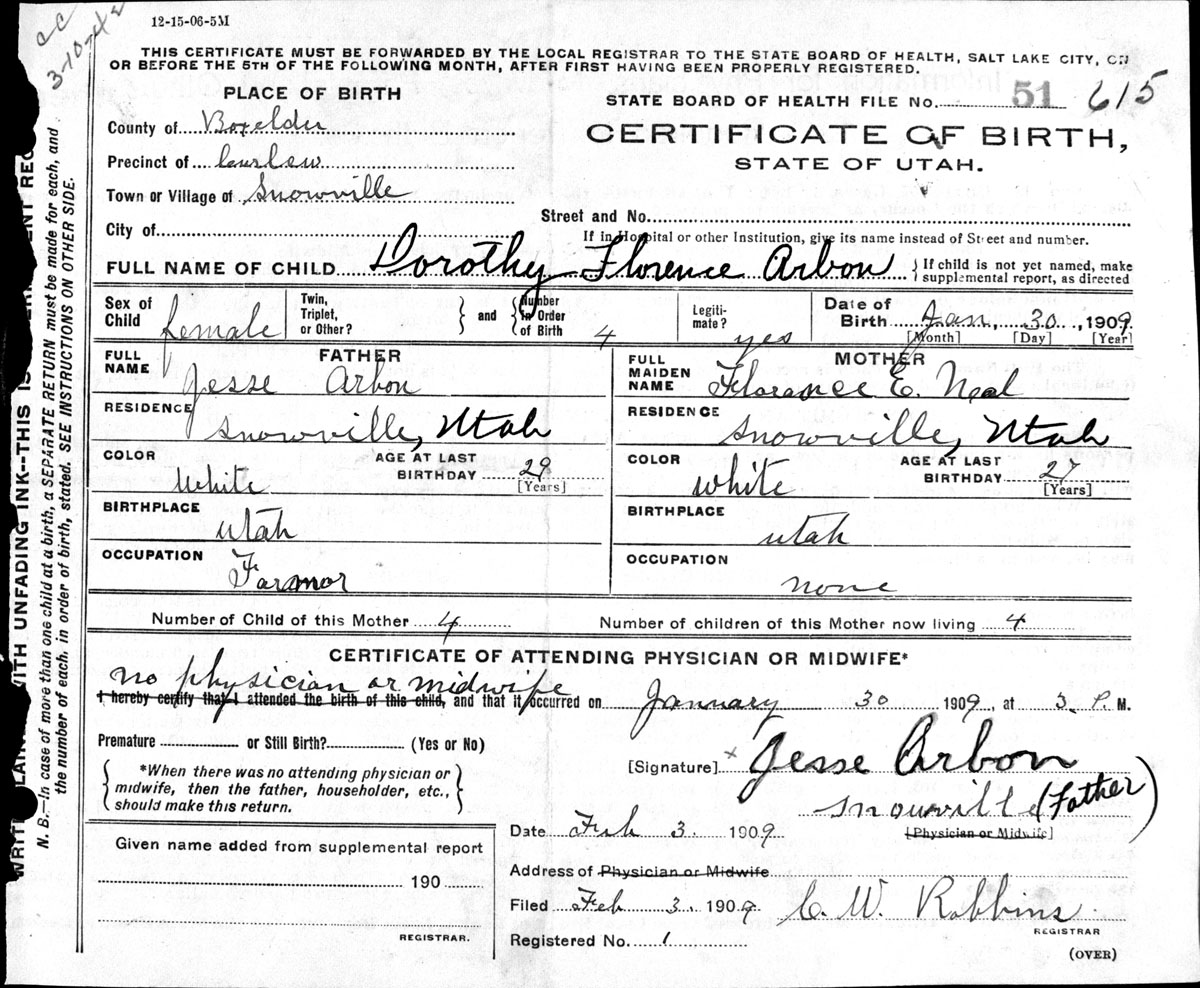 CC
3-10-42
12-15-06-5M
THIS CERTIFICATE MUST BE FORWARDED BY THE LOCAL REGISTRAR TO THE STATE BOARD OF HEALTH, SALT LAKE CITY, ON
OR BEFORE THE 5TH OF THE FOLLOWING MONTH, AFTER FIRST HAVING BEEN PROPERLY REGISTERED.
PLACE OF BIRTH
STATE BOARD OF HEALTH FILE No. 51 615
County of Boxelder
CERTIFICATE OF BIRTH,
Precinct of Curlew
STATE OF UTAH.
Town or Village of Snowville
Street and No.
City of
If in Hospital or other Institution, give its name instead of Street and number.
FULL NAME OF CHILD Dorothy Florence Arbon { If child is not yet named, make
supplemental report, as directed
Sex of Child female Twin, Triplet, or Other? } and { Number in Order of Birth 4 Legiti-mate? yes Date of Birth Jan, 30, 1909
[Month] [Day] [Year]
FATHER
FULL NAME Jesse Arbon
RESIDENCE Snowville, Utah
COLOR White AGE AT LAST BIRTHDAY 29 [Years]
BIRTHPLACE Utah
OCCUPATION Farmor
MOTHER
FULL MAIDEN NAME Florance E. Neal
RESIDENCE Snowville, Utah
COLOR White AGE AT LAST BIRTHDAY 27 [Years]
BIRTHPLACE Utah
OCCUPATION none
Number of Child of this Mother 4 Number of children of this Mother now living 4
CERTIFICATE OF ATTENDING PHYSICIAN OR MIDWIFE*
no physician or midwife
I hereby certify that I attended the birth of this child, and that it occurred on January 30 1909, at 3 P. M.
Premature or Still Birth? (Yes or No)
{ *When there was no attending physician or
midwife, then the father, householder, etc.,
should make this return. }
[Signature] x Jesse Arbon
Snowville (Father)
[Physician or Midwife]
Date Feb 3 1909
Address of Physician or Midwife
Filed Feb 3. 1909 C. W. Robbins
REGISTRAR
Registered No. 1
(OVER)
Given name added from supplemental report
190
REGISTRAR.
WITH UNFADING INK--THIS IS
N. B.--In case of more than one child at a birth, a SEPARATE RETURN must be made for each, and
the number of each, in order of birth, stated. SEE INSTRUCTIONS ON OTHER SIDE.